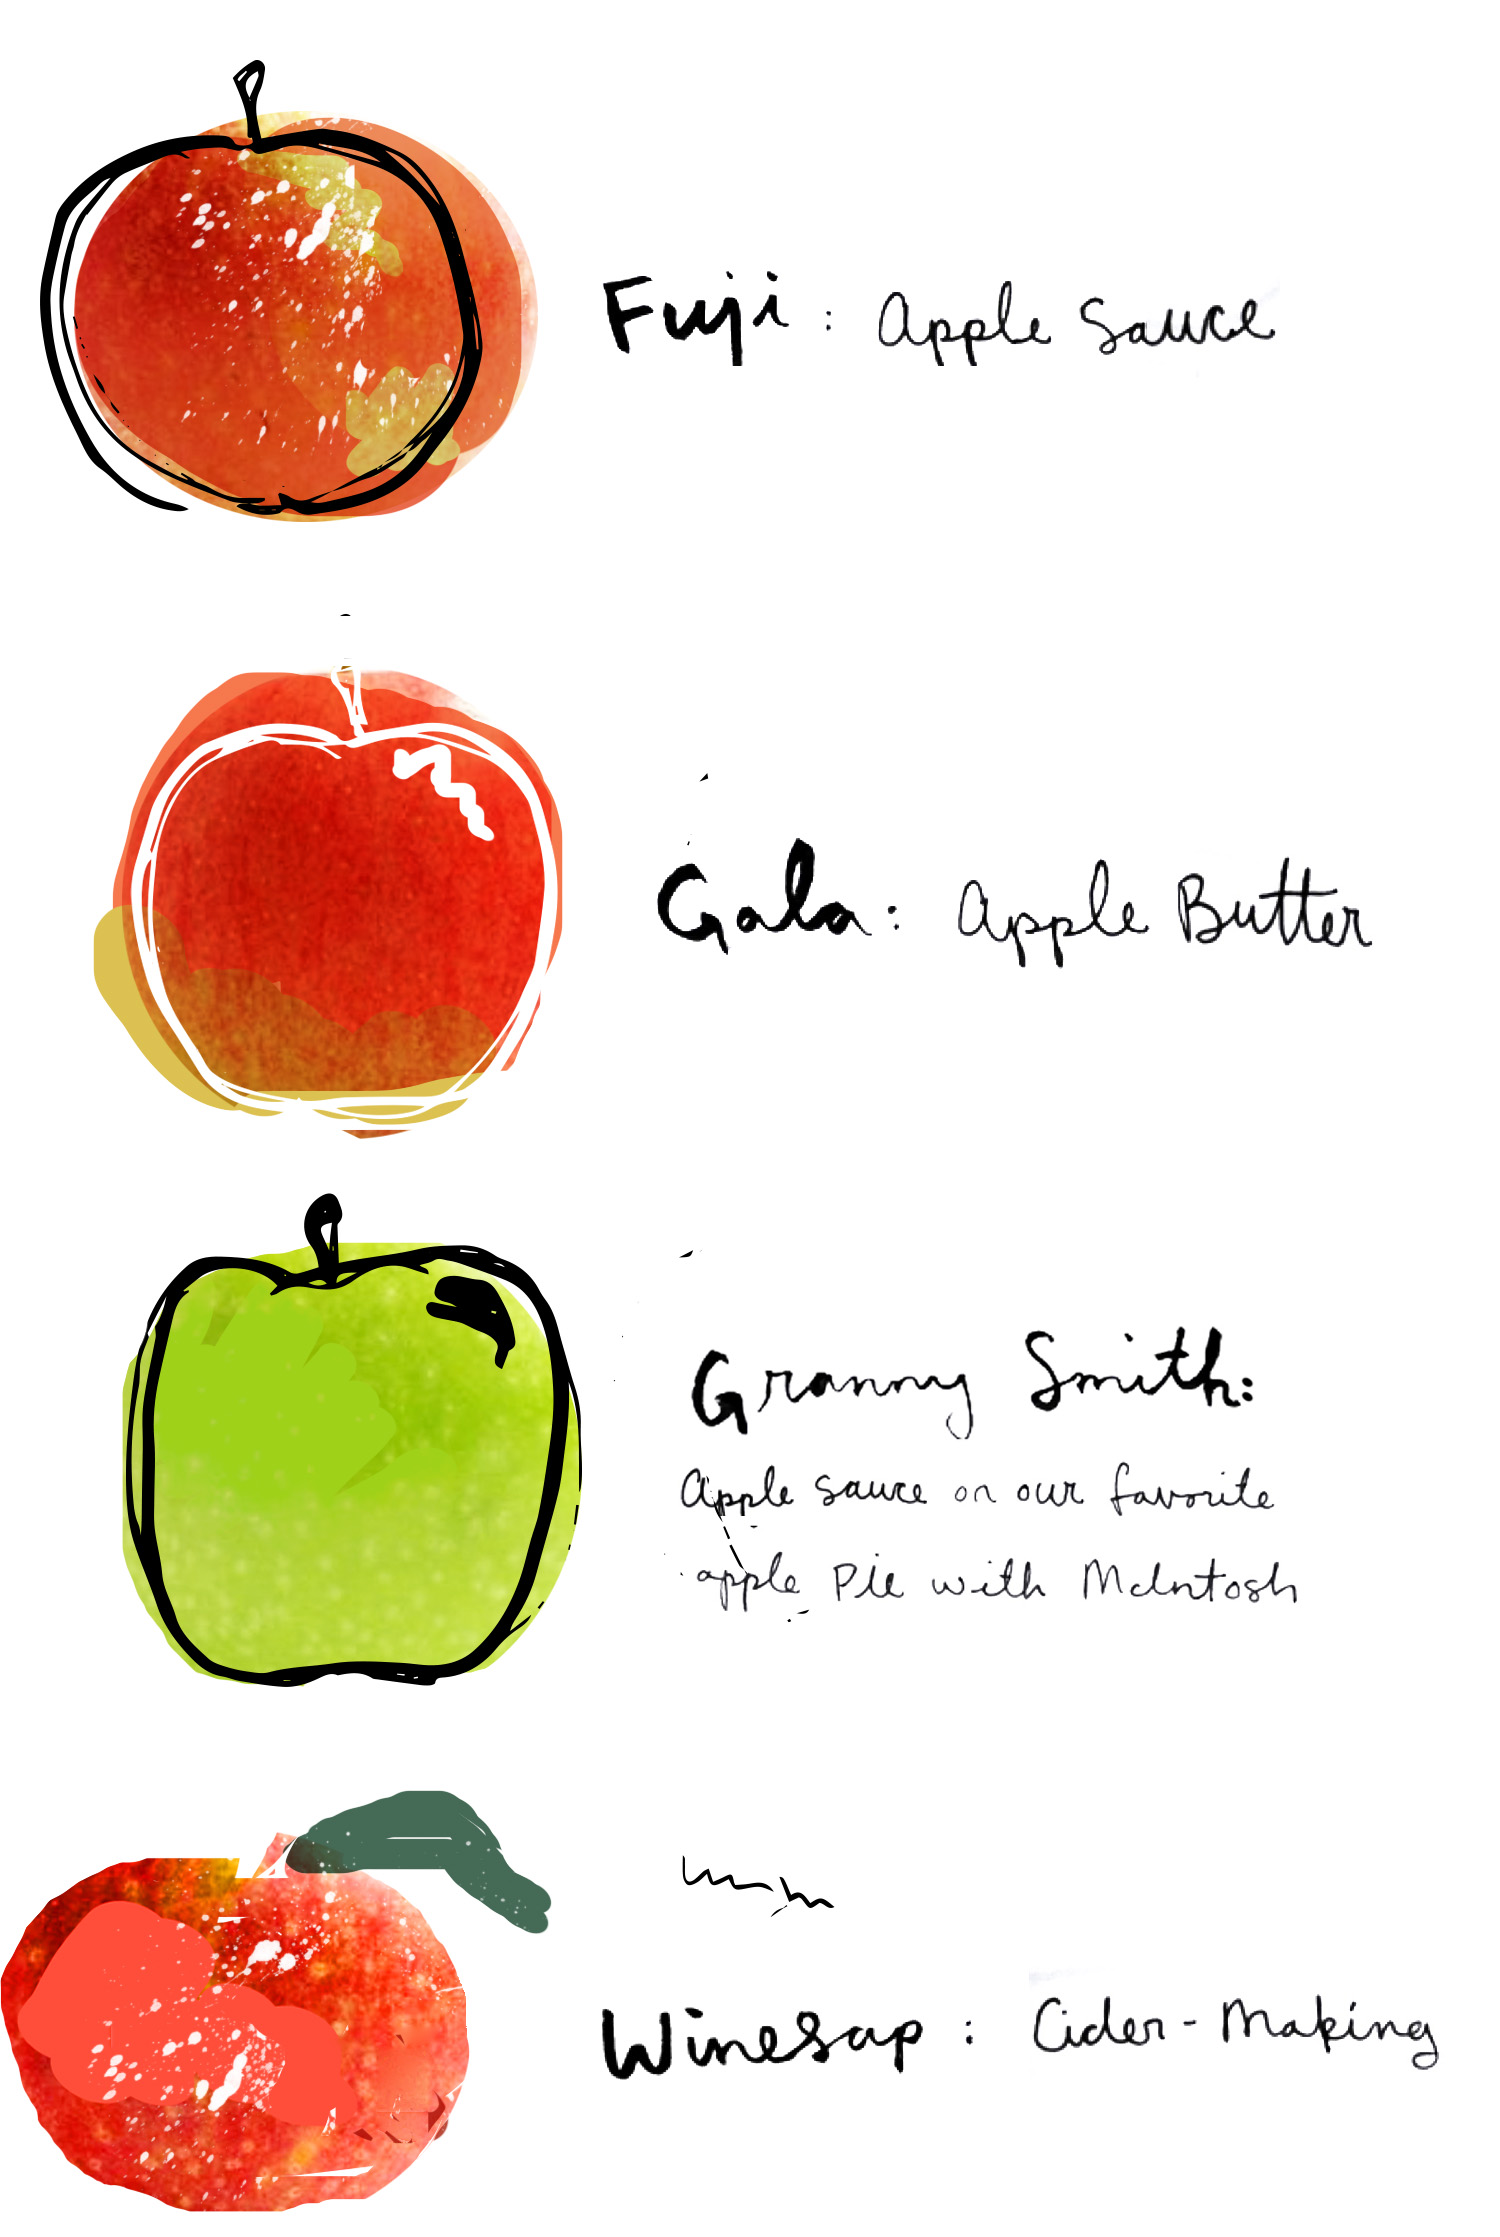 Fuji : Apple Sauce
Gala : Apple Butter
Granny Smith:
Apple sauce or our favorite
apple Pie with McIntosh
Winesap : Cider-Making